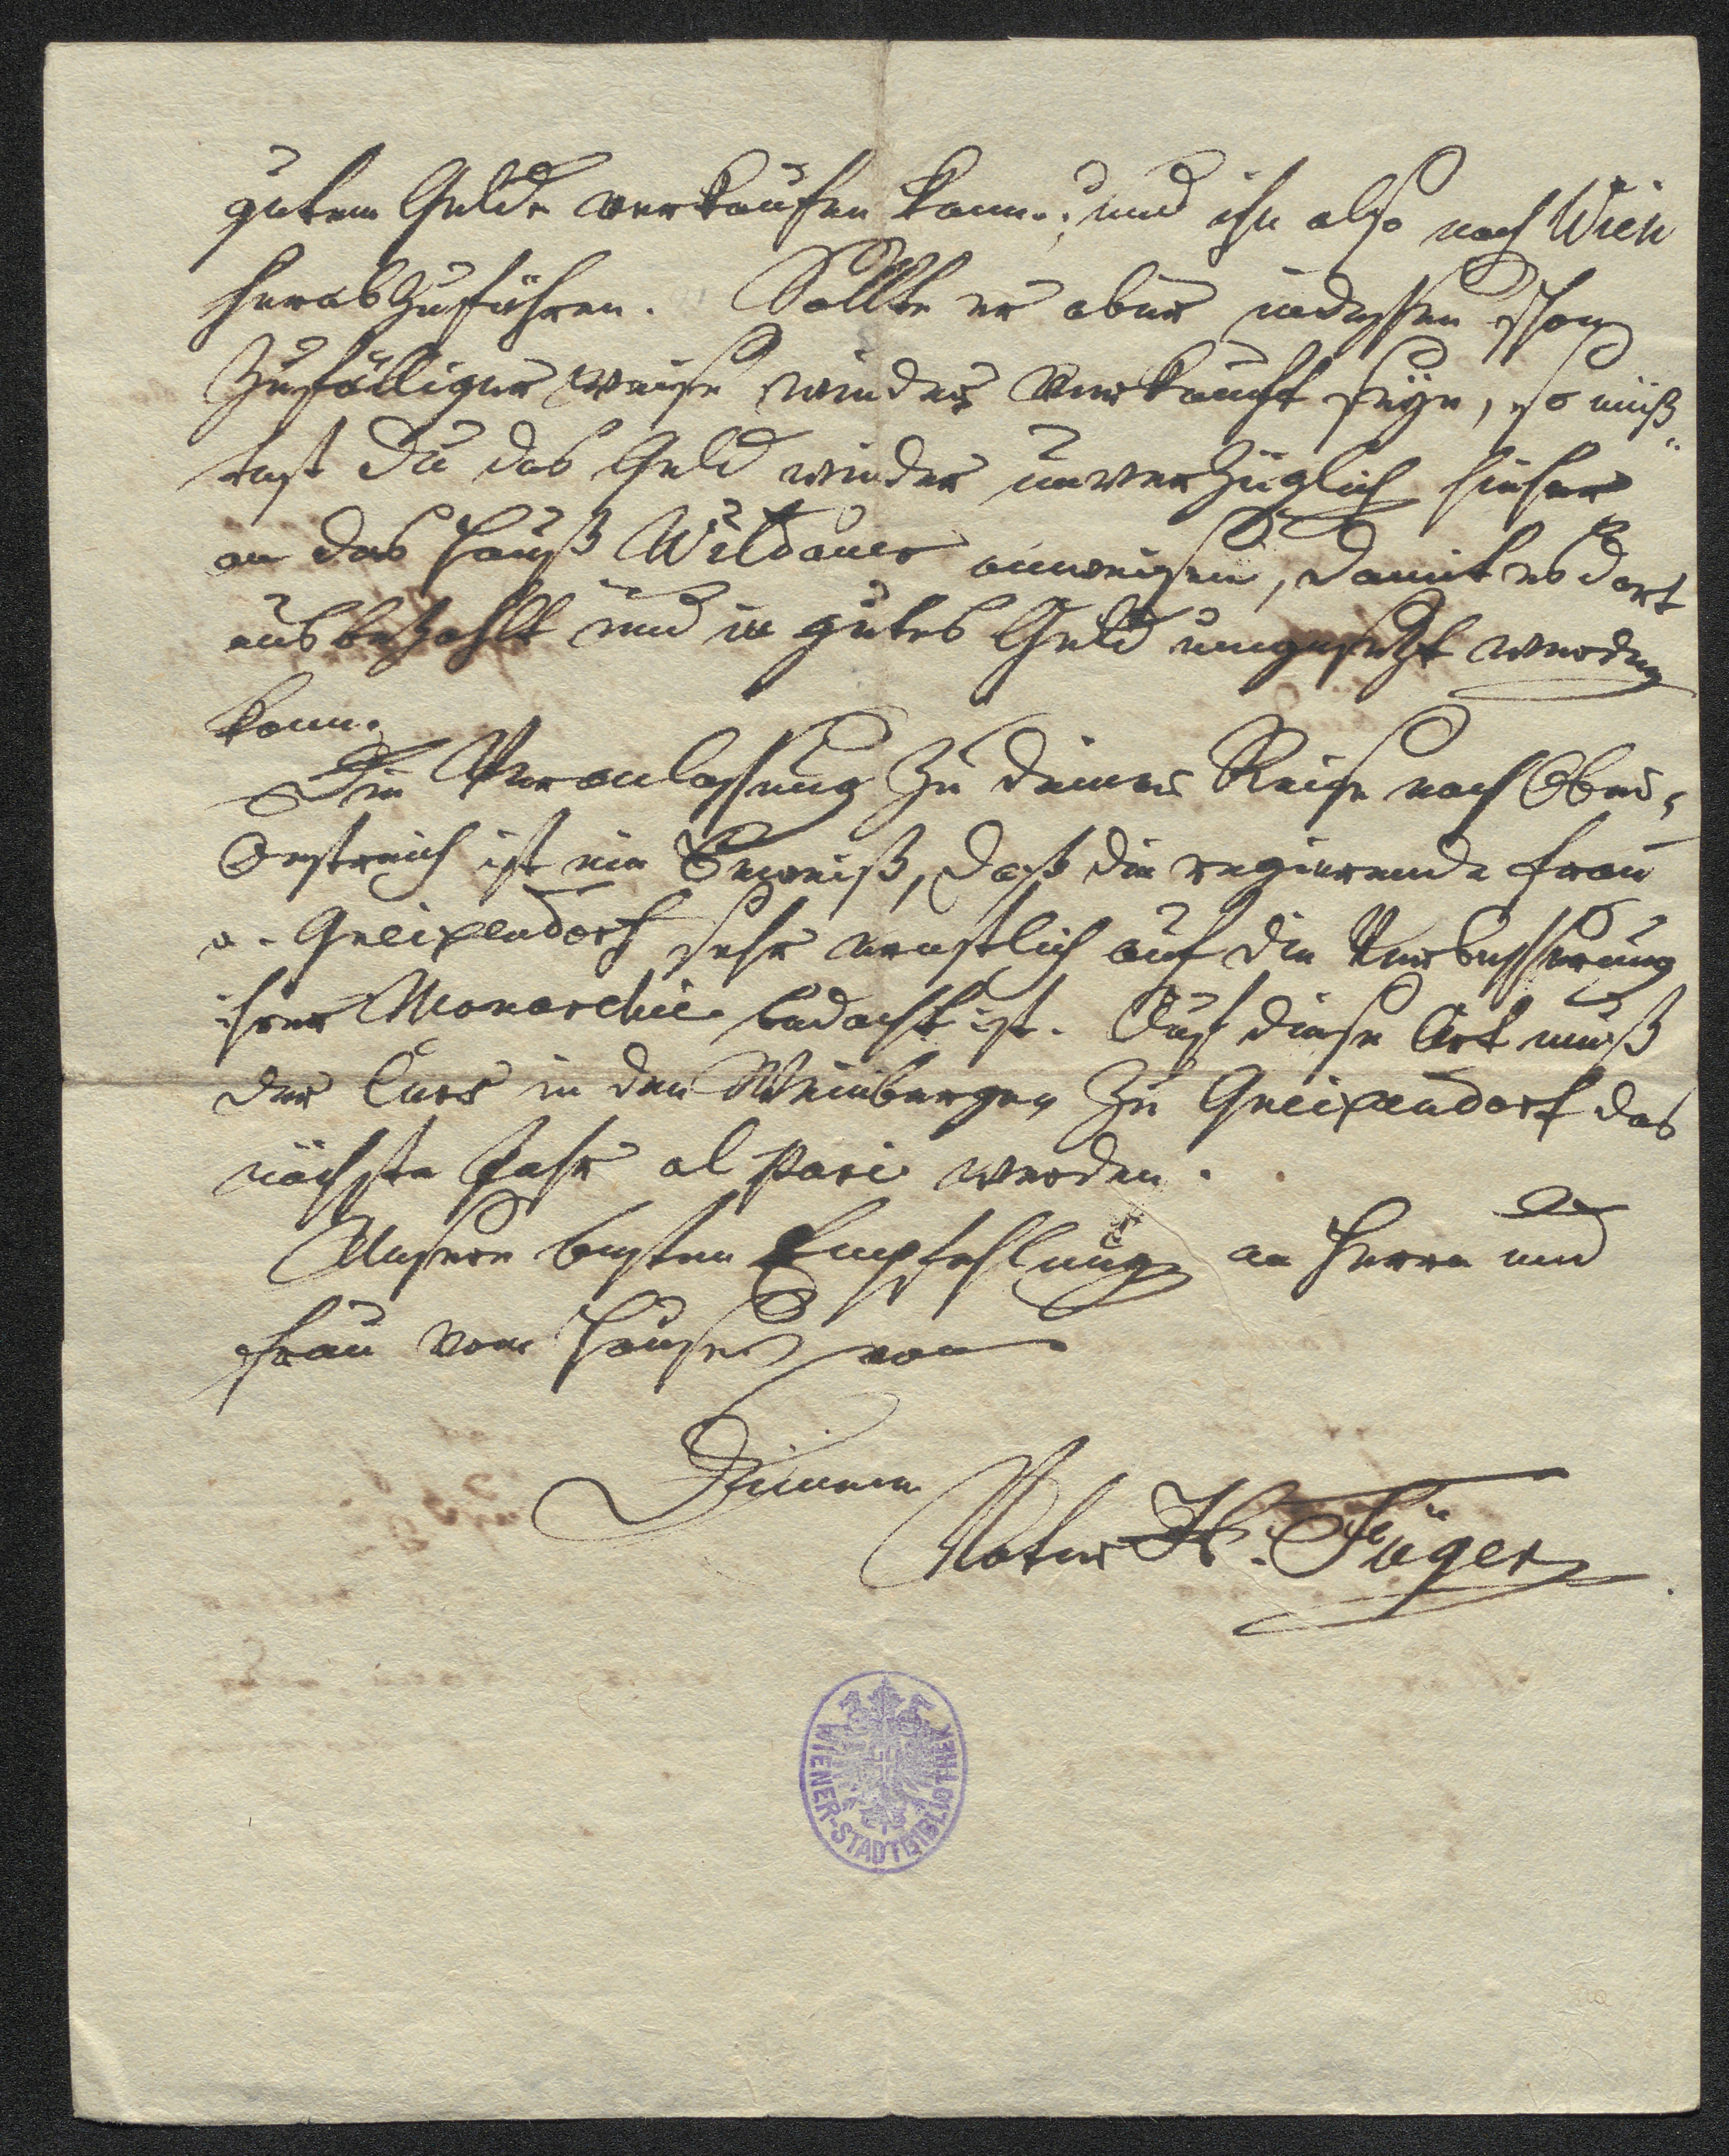 gutem Gelde verkaufen kann; und ihn also nach Wien
herabzuführen. Sollte er aber indessen schon
zufälliger weise wieder verkauft seyn, so müß-
test Du das Geld wieder unverzüglich hieher
an das Hauß Wildauer anweisen, damit es dort
ausbezahlt und in gutes Geld umgesetzt werden
kann.
Die Veranlassung zu deiner Reise nach Ober-
Oestreich ist ein Beweiß, daß die regierende Frau
v. Gneixendorf sehr ernstlich auf die Verbesserung
ihrer Monarchie bedacht ist. Auf diese Art muß
der Curs in den Weinbergen zu Gneixendorf das
nächste Jahr al Pari werden.
Unsere besten Empfehlung an Herrn und
Frau vom Hause von
Deinem
Vater H. Füger
WIENER-STADTBIBLIOTHEK